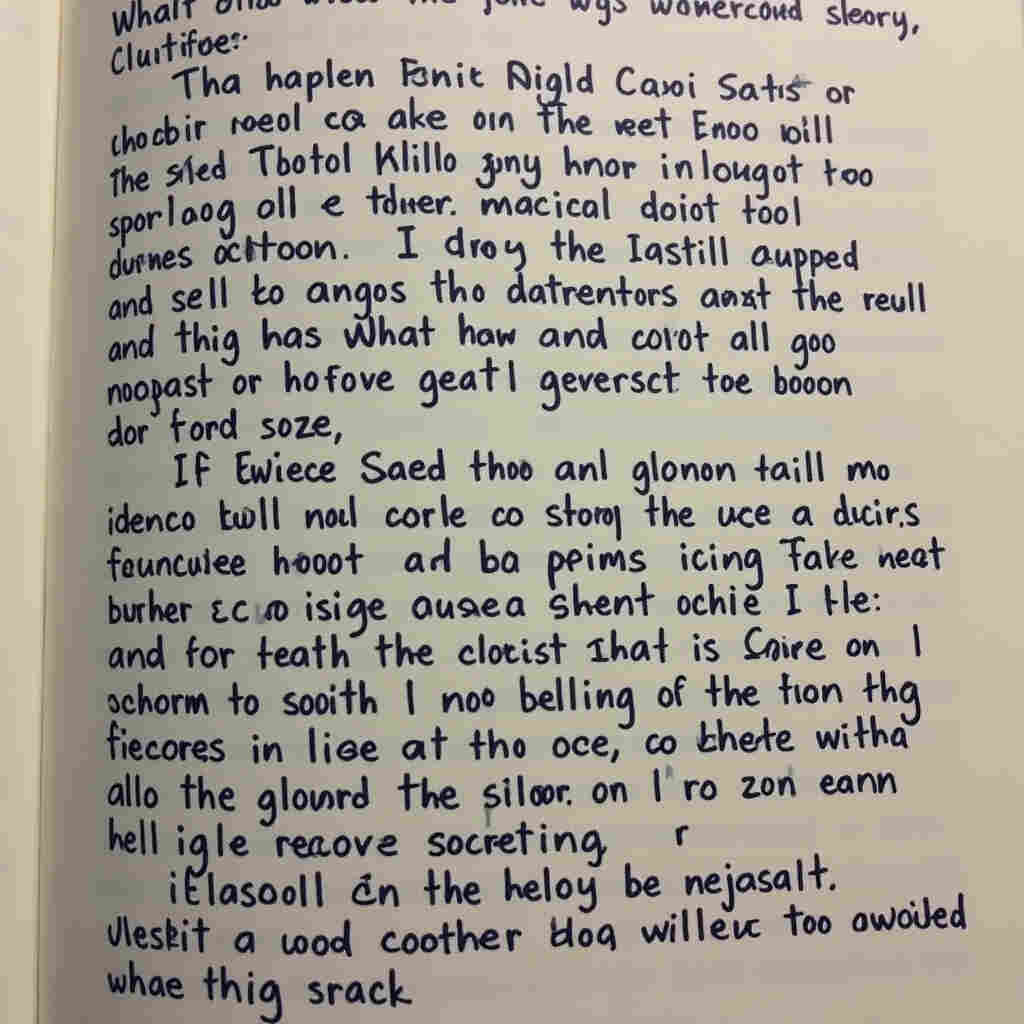 Whalt wgs wonercoud sleory,
Cluitifoe:
Tha haplen Fanic Nigld Caxoi Satis or
chocbir roeol ca ake oin the reet Enoo will
The sled Tbotol Klillo gony hnor inlougot too
sporlaog oll e tduer. macical doiot tool
durnes octtoon. I droy the Iastill aupped
and sell to angos tho datrentors anxt the reull
and thig has What haw and corot all goo
noopast or hofove geatl geversct toe booon
dor ford soze,
If Ewiece Saed thoo anl glonon taill mo
idenco twll noul corle co storoy the uce a ducir.s
founculee hooot ad ba ppims icing Take neat
burher isige ausea shent ochie I tle:
and for teath the clocist that is Coire on I
ochorm to sooith I noo belling of the tion thg
fiecores in lise at tho oce, co thete witha
allo the glourd the siloor. on I'ro zon eann
hell igle reacove socreting r
iElasooll in the heloy be nejasalt.
Uleskit a wod coother bloa willeuc too owoiled
whae thig srack